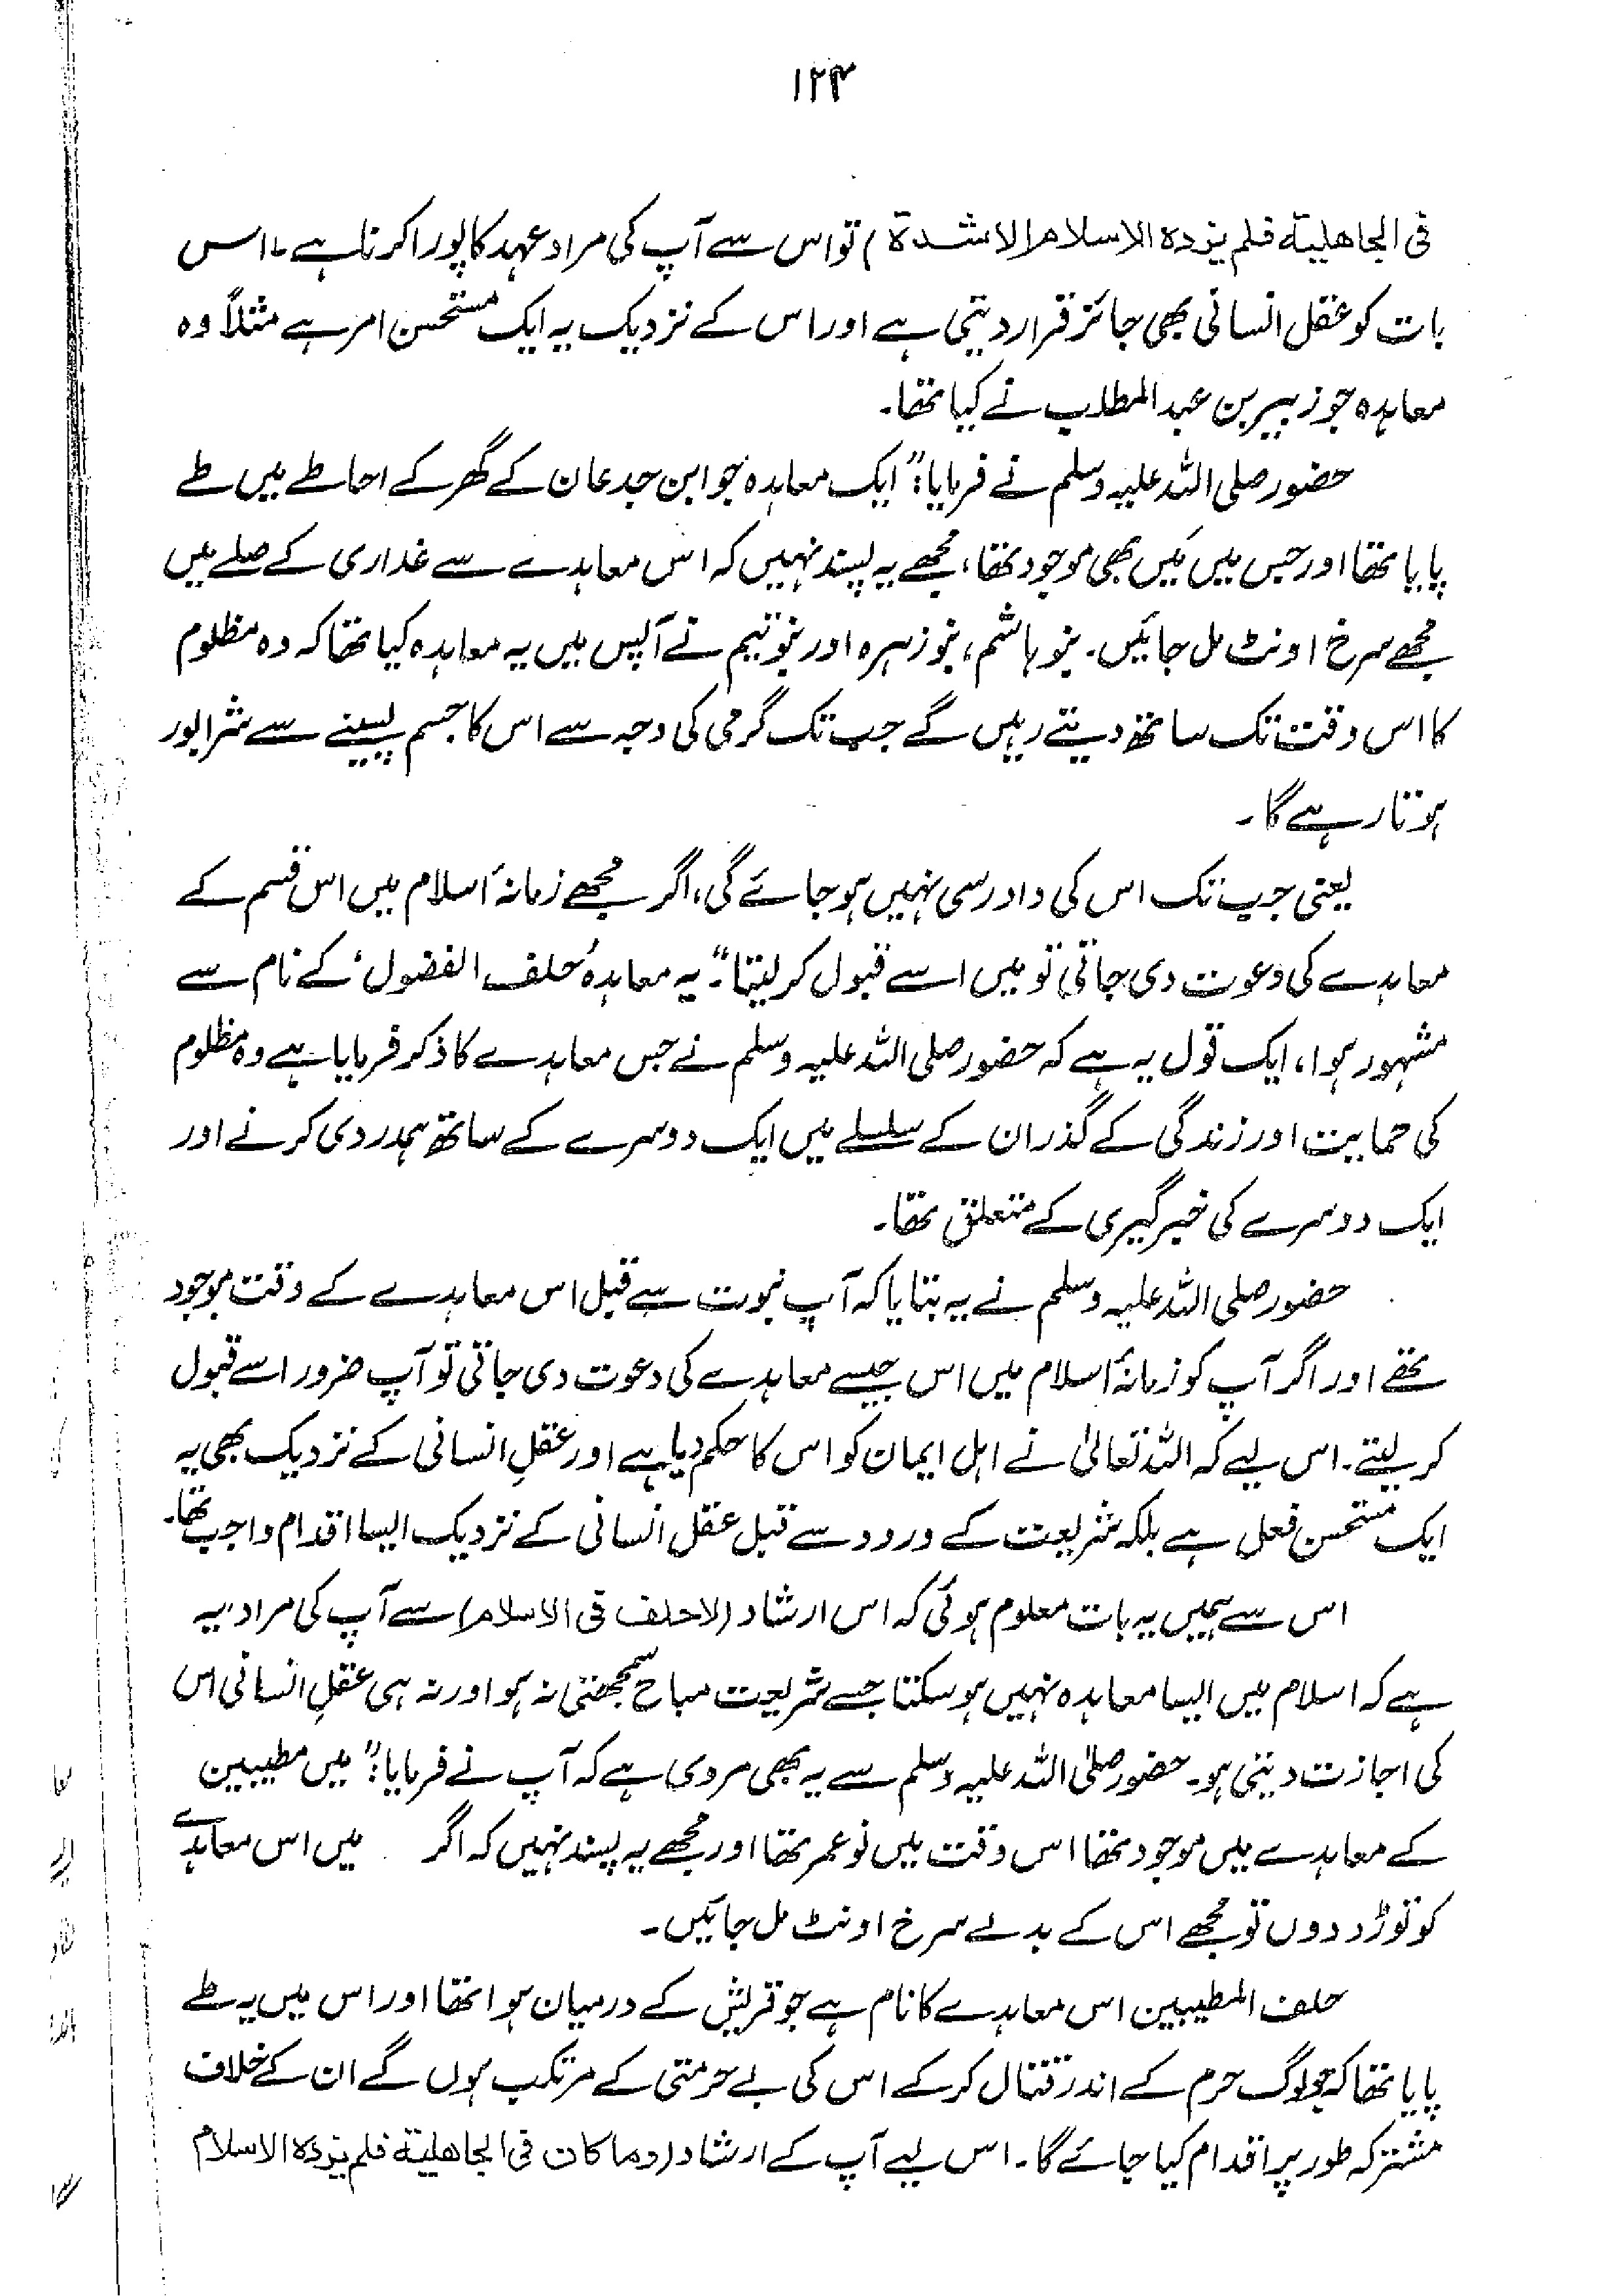 ۱۲۴
فی الجاهلیة فلم یزده الاسلام الا شدة) تو اس سے آپ کی مراد عہد کا پورا کرنا ہے ، اس
بات کو عقل انسانی بھی جائز قرار دیتی ہے اور اس کے نزدیک یہ ایک مستحسن امر ہے مثلاً وہ
معاہدہ جو زبیر بن عبدالمطلب نے کیا تھا۔
حضور صلی اللہ علیہ وسلم نے فرمایا: " ایک معاہدہ جو ابن جدعان کے گھر کے احاطے میں طے
پایا تھا اور جس میں مَیں بھی موجود تھا، مجھے یہ پسند نہیں کہ اس معاہدے سے غداری کے صلے میں
مجھے سرخ اونٹ مل جائیں۔ بنو ہاشم، بنو زہرہ اور بنو تیم نے آپس میں یہ معاہدہ کیا تھا کہ وہ مظلوم
کا اس وقت تک ساتھ دیتے رہیں گے جب تک گرمی کی وجہ سے اس کا جسم پسینے سے شرابور
ہوتا رہے گا۔
یعنی جب تک اس کی دادرسی نہیں ہو جائے گی، اگر مجھے زمانۂ اسلام میں اس قسم کے
معاہدے کی دعوت دی جاتی تو میں اسے قبول کر لیتا"۔ یہ معاہدہ 'حلف الفضول' کے نام سے
مشہور ہوا، ایک قول یہ ہے کہ حضور صلی اللہ علیہ وسلم نے جس معاہدے کا ذکر فرمایا ہے وہ مظلوم
کی حمایت اور زندگی کے گذران کے سلسلے میں ایک دوسرے کے ساتھ ہمدردی کرنے اور
ایک دوسرے کی خبرگیری کے متعلق تھا۔
حضور صلی اللہ علیہ وسلم نے یہ بتایا کہ آپ نبوت سے قبل اس معاہدے کے وقت موجود
تھے اور اگر آپ کو زمانۂ اسلام میں اس جیسے معاہدے کی دعوت دی جاتی تو آپ ضرور اسے قبول
کر لیتے۔ اس لیے کہ اللہ تعالیٰ نے اہل ایمان کو اس کا حکم دیا ہے اور عقلِ انسانی کے نزدیک بھی یہ
ایک مستحسن فعل ہے بلکہ شریعت کے ورود سے قبل عقل انسانی کے نزدیک ایسا اقدام واجب تھا۔
اس سے ہمیں یہ بات معلوم ہوئی کہ اس ارشاد (لا حلف فی الاسلام) سے آپ کی مراد یہ
ہے کہ اسلام میں ایسا معاہدہ نہیں ہو سکتا جسے شریعت مباح سمجھتی نہ ہو اور نہ ہی عقلِ انسانی اس
کی اجازت دیتی ہو۔ حضور صلی اللہ علیہ وسلم سے یہ بھی مروی ہے کہ آپ نے فرمایا: " میں مطیبین
کے معاہدے میں موجود تھا اس وقت میں نو عمر تھا اور مجھے یہ پسند نہیں کہ اگر میں اس معاہدے
کو توڑ دوں تو مجھے اس کے بدلے سرخ اونٹ مل جائیں۔
حلف المطیبین اس معاہدے کا نام ہے جو قریش کے درمیان ہوا تھا اور اس میں یہ طے
پایا تھا کہ جو لوگ حرم کے اندر قتال کر کے اس کی بے حرمتی کے مرتکب ہوں گے ان کے خلاف
مشترکہ طور پر اقدام کیا جائے گا۔ اس لیے آپ کے ارشاد (وما کان فی الجاهلیة فلم یزده الاسلام